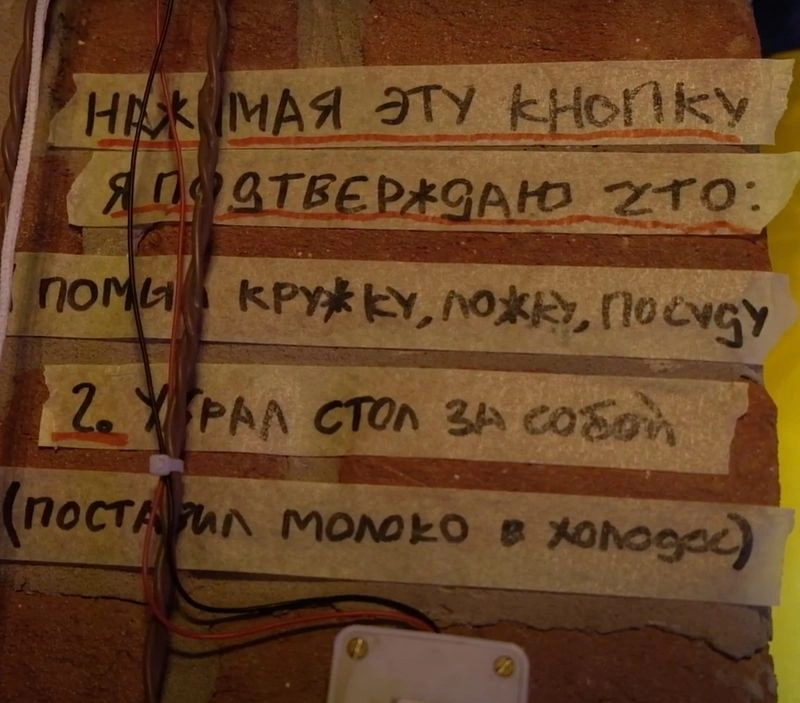 НАЖИМАЯ ЭТУ КНОПКУ
Я ПОДТВЕРЖДАЮ ЧТО:
ПОМЫЛ КРУЖКУ, ЛОЖКУ, ПОСУДУ
2. УБРАЛ СТОЛ ЗА СОБОЙ
(ПОСТАВИЛ МОЛОКО В ХОЛОДОС)